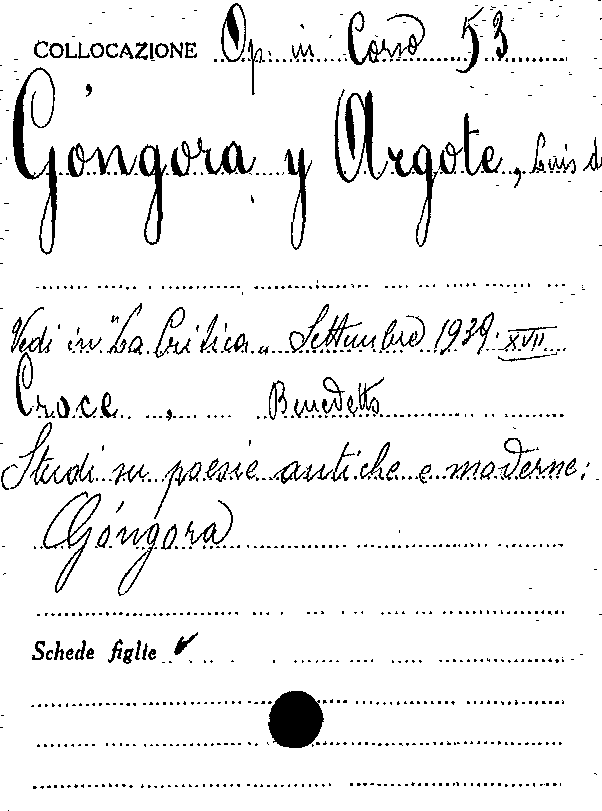 COLLOCAZIONE Op. in Corso 53
Góngora y Argote, Luis d
Vedi in "La Critica" Settembre 1939. XVII
Croce, Benedetto
Studi su poesie antiche e moderne:
Góngora
Schede figlie ✓